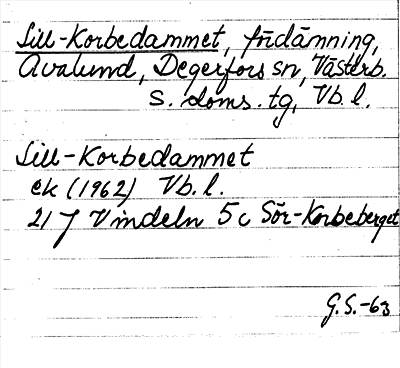 Lill-Korbedammet, fördämning,
Avalund, Degerfors sn, Västerb.
s. doms. tg, Vb. l.
Lill-Korbedammet
ek (1962) Vb. l.
21 J Vindeln 5 c Sör-Korbeberget
G.S.-63